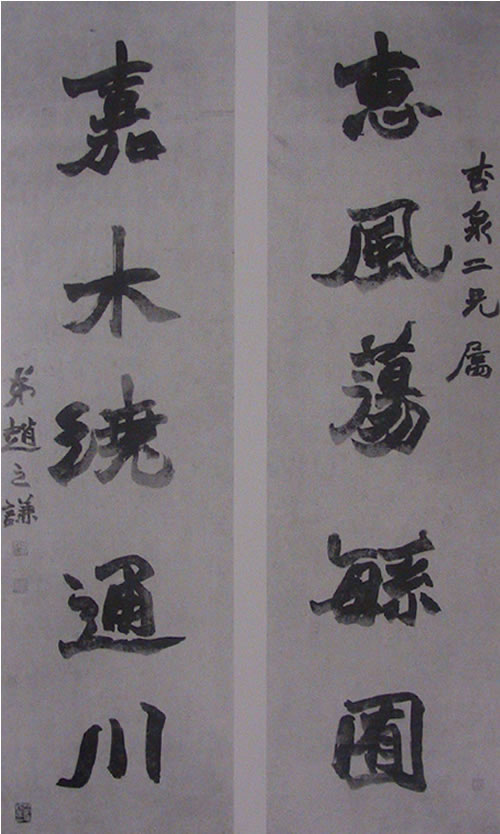 杏泉二兄属
惠風蕩緐囿
嘉木繞通川
弟趙之謙